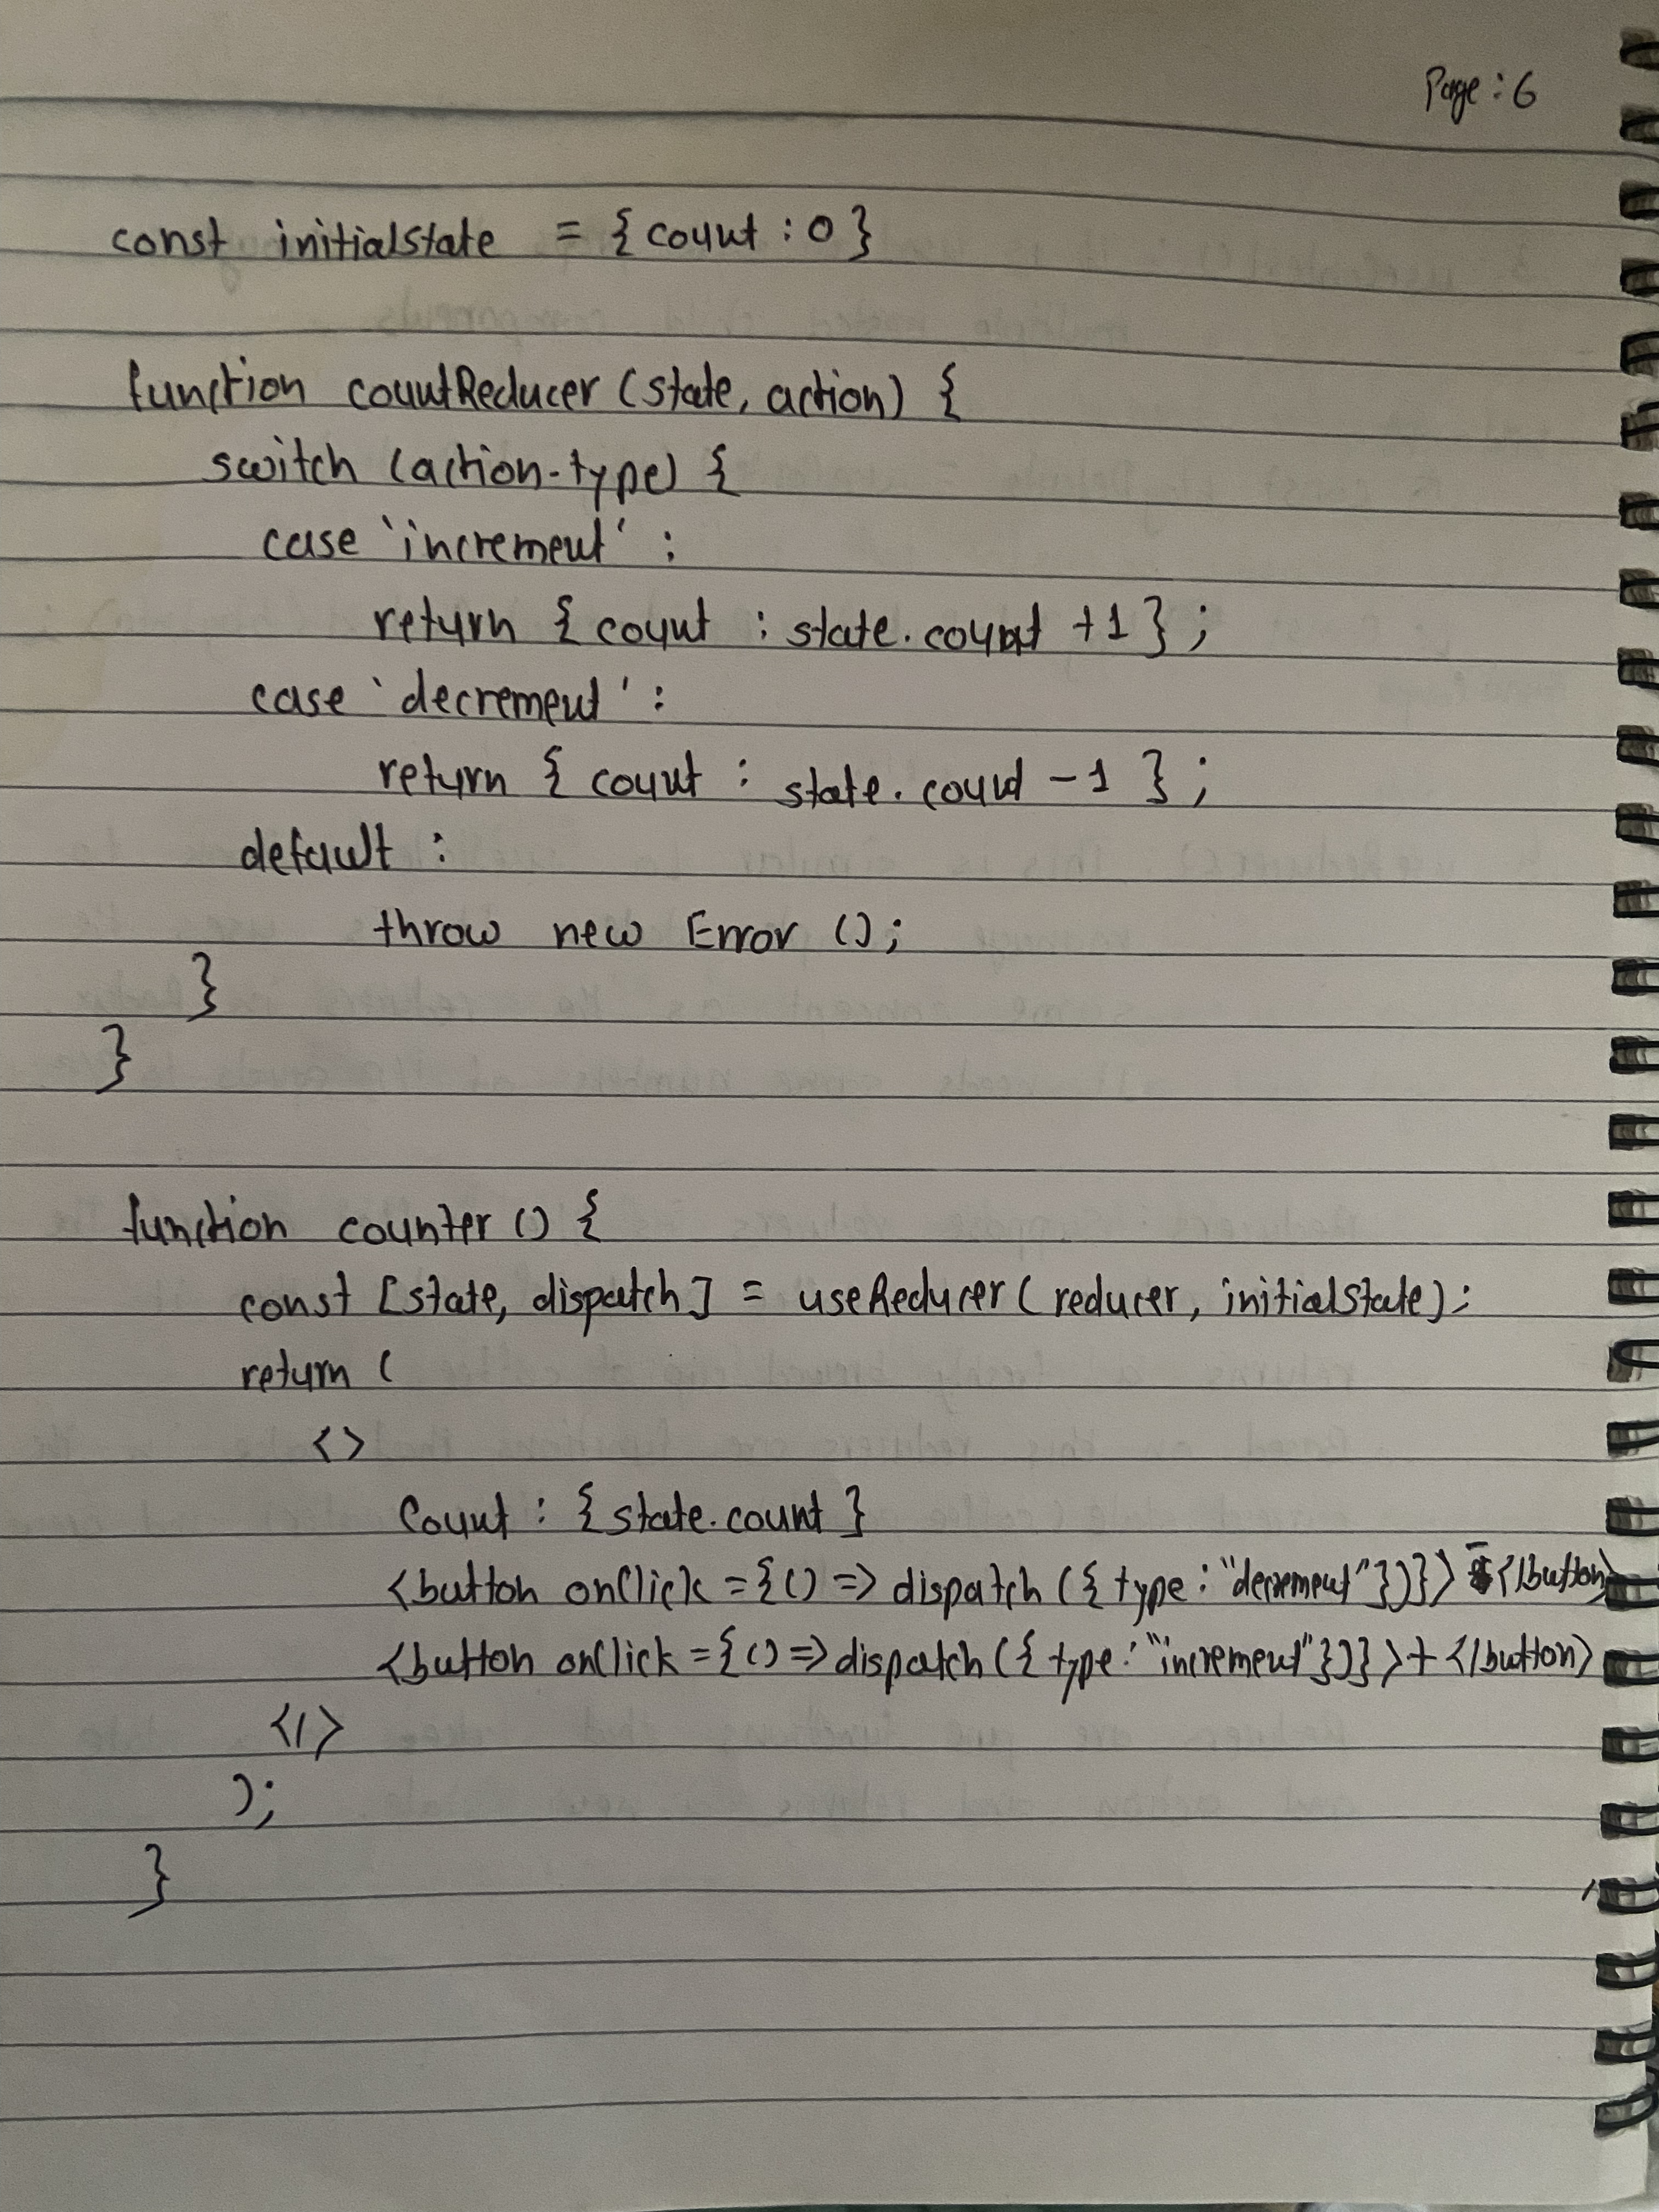 Page : 6
const initialstate = { count : 0 }
function countReducer (state, action) {
switch (action.type) {
case 'increment' :
return { count : state.count +1 } ;
case 'decrement' :
return { count : state.count -1 } ;
default :
throw new Error () ;
}
}
function counter () {
const [state, dispatch] = useReducer ( reducer, initialstate) ;
return (
<>
Count : { state.count }
<button onClick = { () => dispatch ( { type : "decrement" } ) } > - </button>
<button onClick = { () => dispatch ( { type : "increment" } ) } > + </button>
</>
) ;
}